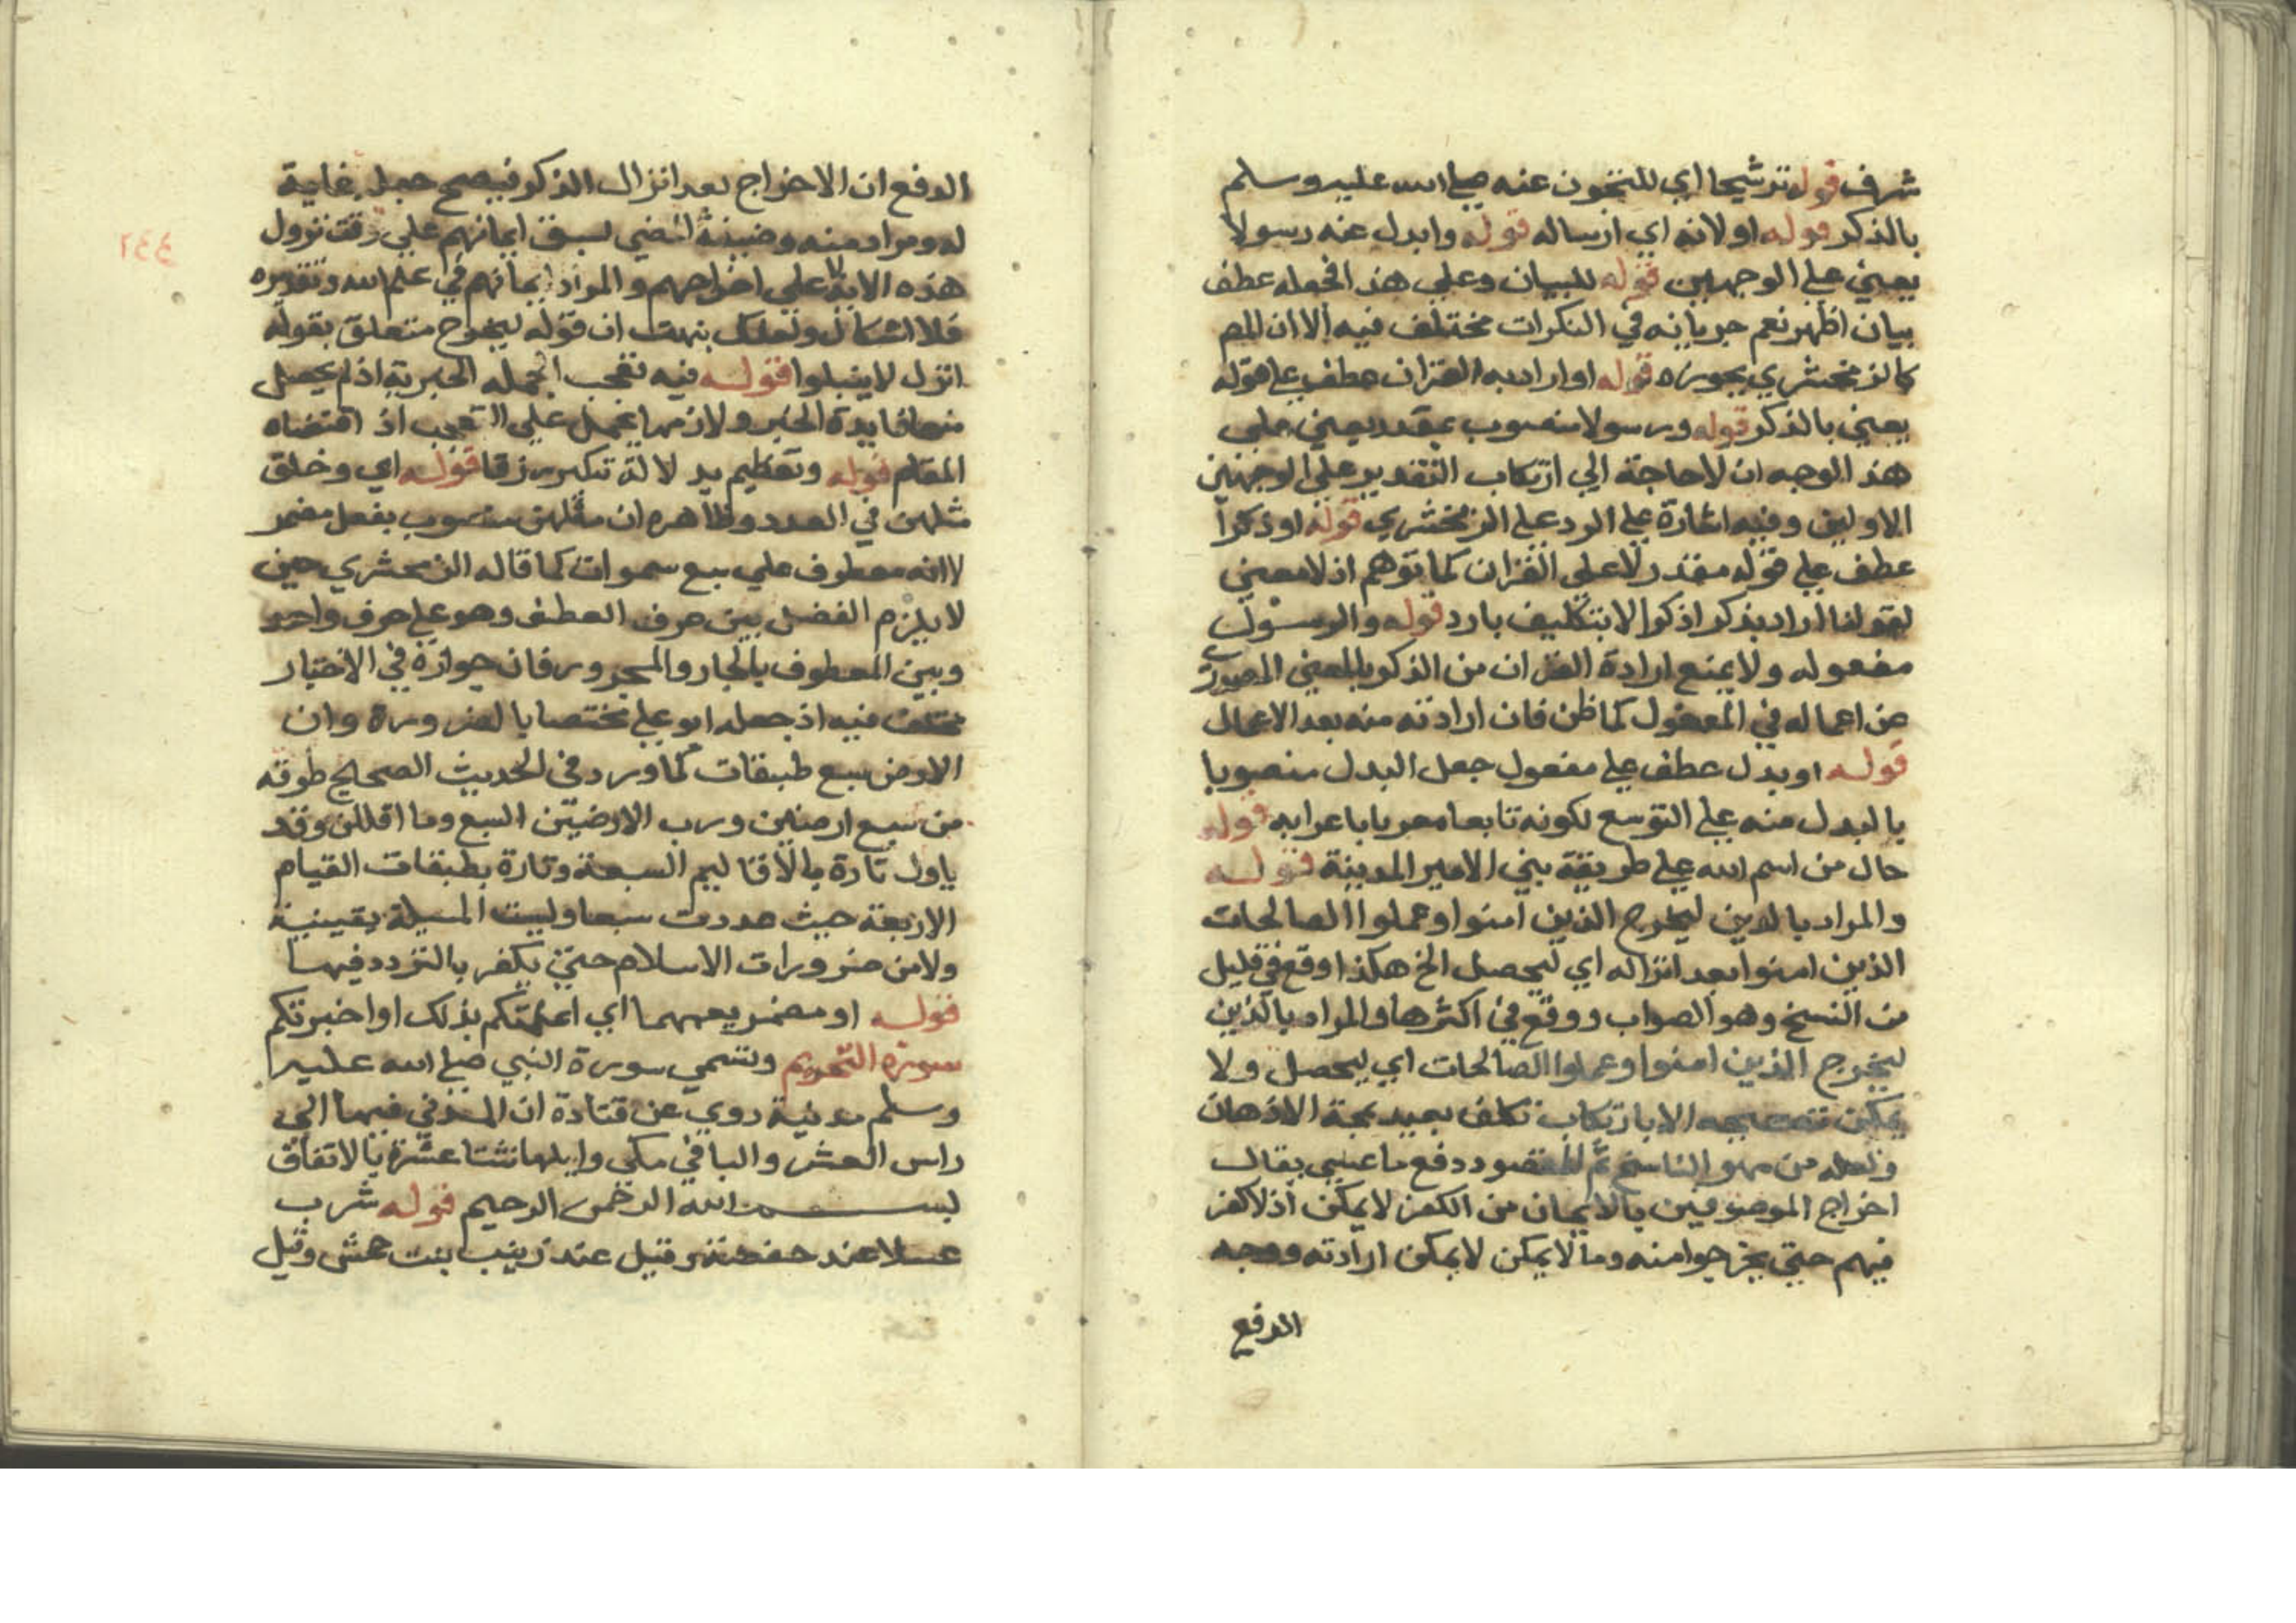 شرف قوله ترشيحا اي للتجوز عنه صلى الله عليه وسلم
بالذكر قوله او لانه اي ارساله قوله وابدل عنه رسولا
يعني على الوجهين قوله للبيان وعلى هذا فجعله عطف
بيان اظهر نعم جريانه في النكرات مختلف فيه الا ان المص
كالزمخشري يجوزه قوله او اراد به القران عطف على قوله
يعني بالذكر قوله ورسولا منصوب بمقدر يعني على
هذا الوجه ان لا حاجة الي ارتكاب التقدير على الوجهين
الاولين وفيه اشارة على الرد على الزمخشري قوله او ذكرا
عطف على قوله مقدر لا على القران كما توهم اذ لا معنى
لقولنا اراد بذكر اذكرا الا بتكليف بارد قوله والرسول
مفعوله ولا يمنع ارادة القران من الذكر بالمعنى المصدر
عن اعماله في المعفول كما ظن فان ارادته منه بعد الاعمال
قوله او بدل عطف على مفعول جعل البدل منصوبا
بالبدل منه على التوسع لكونه تابعا معربا باعرابه قوله
حال من اسم الله على طريقة بني الامير المدينة قوله
والمراد بالذين ليخرج الذين امنوا وعملوا الصالحات
الذين امنوا بعد انزاله اي ليحصل الخ هكذا وقع في قليل
من النسخ وهو الصواب ووقع في اكثرها والمراد بالذين
ليخرج الذين امنوا وعملوا الصالحات اي ليحصل ولا
يمكن تصحيحه الا بارتكاب تكلف بعيد يمجه الاذهان
ولعله من سهو الناسخ ثم المقصود دفع ما عسى يقال
اخراج الموصوفين بالايمان من الكفر لا يمكن اذ لا كفر
فيهم حتى يخرجوا منه وما لا يمكن لا يمكن ارادته ووجه
الدفع
الدفع ان الاخراج بعد انزال الذكر فيصح جعل غاية
له ومراد منه وصيغة المضي لسبق ايمانهم على وقت نزول
هذه الاية لا على اخراجهم والمراد ايمانهم في علم الله وتقديره
فلا اشكال ولعلك تنبهت ان قوله ليخرج متعلق بقوله
انزل لا يتلوا قوله فيه تعجب الجمله الخبرية اذ لم يحصل
منها فايدة الخبر ولازمها يحمل على التعجب اذ اقتضاه
المقام قوله وتعظيم بدلالة تنكير رزقا قوله اي وخلق
مثلهن في العدد وظاهره ان مثلهن منصوب بفعل مضمر
لا انه معطوف على سبع سموات كما قاله الزمخشري حين
لا يلزم الفصل بين حرف العطف وهو على حرف واحد
وبين المعطوف بالجار والمجرور فان جوازه في الاختيار
مختلف فيه اذ جعله ابو علي مختصا بالضرورة وان
الارض سبع طبقات كما ورد في الحديث الصحيح طوقه
من سبع ارضين ورب الارضين السبع وما اقللن وقد
ياول تارة بالاقاليم السبعة وتارة بطبقات القيام
الاربعة حيث عددت سبعا وليست المسيلة يقينية
ولا من ضرورات الاسلام حتى يكفر بالتردد فيها
قوله او مضمر يعمهما اي اعلمتكم بذلك او اخبرتكم
سورة التحريم وتسمي سورة النبي صلى الله عليه
وسلم مدنية روي عن قتادة ان المدني فيها الى
راس العشر والباقي مكي وايها ثنتا عشرة بالاتفاق
بسم الله الرحمن الرحيم قوله شرب
عسلا عند حفصة وقيل عند زينب بنت جحش وقيل
٢٤٤